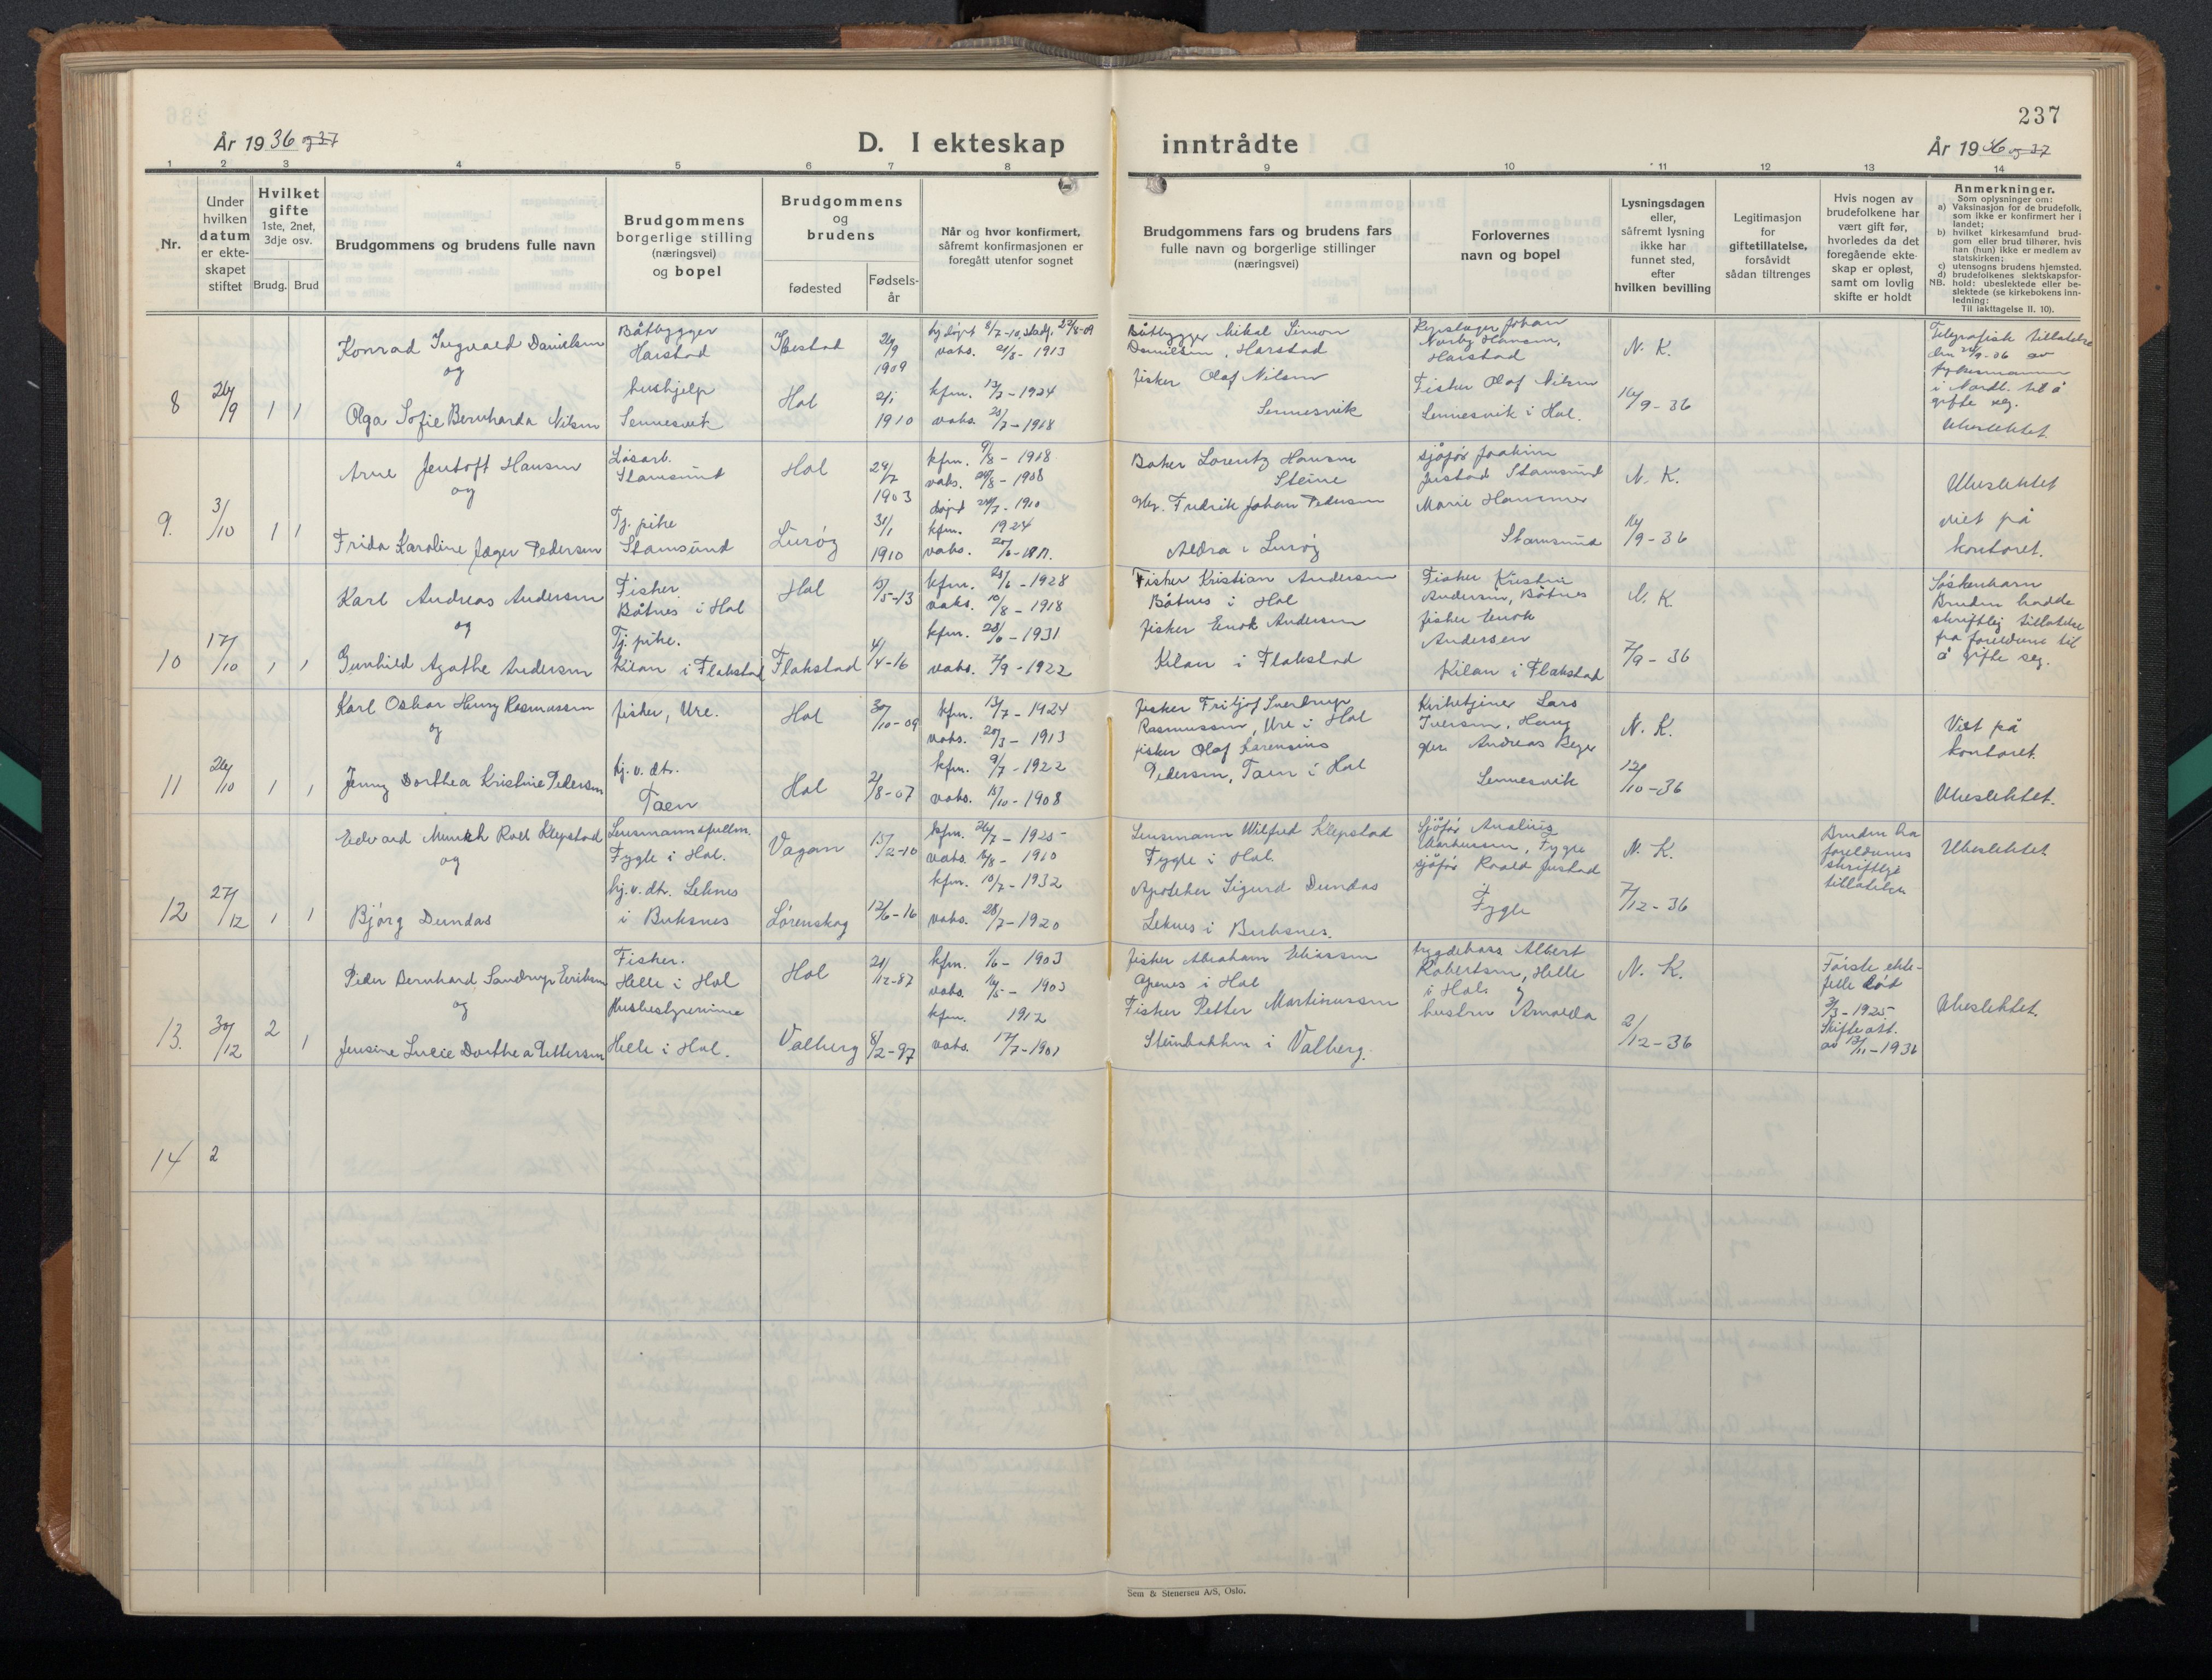 237
År 1936 og 37
D. I ekteskap inntrådte
År 1936 og 37
1 2 3 4 5 6 7 8 9 10 11 12 13 14
Nr.
Under hvilken datum er ekteskapet stiftet
Hvilket gifte 1ste, 2net, 3dje osv.
Brudg. Brud
Brudgommens og brudens fulle navn
Brudgommens borgerlige stilling (næringsvei) og bopel
Brudgommens og brudens
fødested
Fødselsår
Når og hvor konfirmert, såfremt konfirmasjonen er foregått utenfor sognet
Brudgommens fars og brudens fars fulle navn og borgerlige stillinger (næringsvei)
Forlovernes navn og bopel
Lysningsdagen eller, såfremt lysning ikke har funnet sted, efter hvilken bevilling
Legitimasjon for giftetillatelse, forsåvidt sådan tiltrenges
Hvis nogen av brudefolkene har vært gift før, hvorledes da det foregående ekteskap er opløst, samt om lovlig skifte er holdt
Anmerkninger.
Som oplysninger om:
a) Vaksinasjon for de brudefolk, som ikke er konfirmert her i landet;
b) hvilket kirkesamfund brudgom eller brud tilhører, hvis han (hun) ikke er medlem av statskirken;
c) utensogns brudens hjemsted.
d) brudefolkenes slektskapsforhold: ubeslektede eller beslektede (se kirkebokens innledning:
NB. Til iakttagelse II. 10).
8 26/9 1 1
Konrad Ingvald Danielsen
og
Olga Sofie Bernharda Nilsen
Båtbygger
Harstad
hushjelp
Sennesvik
Ibestad
26/9 1909
Hol
1910
vaks. 1913
kfm. 13/7 - 1924
vaks. 1918
Båtbygger Mikal Simon
Danielsen, Harstad
fisker Olaf Nilsen
Sennesvik
Johan
Hansen,
Harstad
Fisker Olaf Nilsen
Sennesvik i Hol.
N. K.
14/9 - 36
Telegrafisk tillatelse
i Nordl. til å
gifte seg.
Ubeslektet.
9. 3/10 1 1
Arne Jentoft Hansen
og
Frida Karoline Jæger Pedersen
Løsarb.
Stamsund
Tj. pike
Stamsund
Hol
29/7 1903
Lurøy
31/1 1910
kfm. 9/8 - 1918
vaks. - 1908
kfm. 1924
Baker Lorentz Hansen
Steine
Fredrik Johan Pedersen
Aldra i Lurøy
sjåfør Joakim
Justad Stamsund
Marie Hammer
Stamsund
N. K.
14/9 - 36
Ubeslektet
viet på
kontoret.
10 17/10 1 1
Karl Andreas Andersen
og
Gunhild Agathe Andersen
Fisker.
Båtnes i Hol
Tj. pike.
Kilan i Flakstad
Hol
15/5-13
Flakstad
4/4-16
kfm. 24/6 - 1928
vaks. 10/8 - 1918
kfm. 28/6 - 1931
vaks. 7/9 - 1922
Fisker Kristian Andersen
Båtnes i Hol
fisker Enok Andersen
Kilan i Flakstad
Fisker Kristian
Andersen, Båtnes
fisker Enok
Andersen
Kilan i Flakstad
N. K.
7/9 - 36
Søskenbarn
Bruden hadde
skriftlig tillatelse
fra foreldrene til
å gifte seg.
11 26/10 1 1
Karl Oskar Henry Rasmussen
og
Jenny Dorthea Kristine Pedersen
fisker, Ure.
hj. v. dtr.
Taen
Hol
30/10-09
Hol
2/8-07
kfm. 13/7 - 1924
vaks. 20/3 - 1913
kfm. 9/7 - 1922
vaks. 15/10 - 1908
fisker Fritjof Sverdrup
Rasmussen, Ure i Hol
fisker Olaf Larensius
Pedersen, Taen i Hol
Kirketjener Lars
Iversen, Haug
Andreas
Sennesvik
N. K.
12/10-36
Viet på
kontoret.
Ubeslektet.
12 27/12 1 1
Edvard Munch Roll Klepstad
og
Bjørg Dundas
Lensmannsfullm.
Fygle i Hol.
hj. v. dtr. Leknes
i Buksnes
Vågan
15/2-10
Lørenskog
12/6-16
kfm. 26/7 - 1925
vaks. - 1910
kfm. 10/7 - 1932
vaks. 28/7 - 1920
Lensmann Wilfred Klepstad
Fygle i Hol.
Apoteker Sigurd Dundas
Leknes i Buksnes.
Sjåfør Anelius
Markussen, Fygle
sjåfør Roald Justad
Fygle
N. K.
7/12 - 36
Bruden ha
foreldrenes
skriftlige
tillatelse
Ubeslektet.
13. 30/12 2 1
Peder Bernhard Sandrup Eriksen
og
Jensine Lucie Dorthea Pettersen
Fisker.
Helle i Hol
Husbestyrerinne
Helle i Hol.
Hol
21/12-87
Valberg
8/2-97
kfm. 1/6 - 1903
vaks. - 1903
kfm. 1912
vaks. 17/7 - 1901
fisker Abraham Eliassen
Apenes i Hol
Fisker Petter Martinussen
Steinbakken i Valberg.
bygdebas Albert
Robertsen, Helle
i Hol. og
hustru Amalda
N. K.
2/12 - 36
Første ekte-
felle død
3/3 - 1925
Skifteatt.
av 13/11 - 1936
Ubeslektet.
14 2
Sem & Stenersen A/S, Oslo.